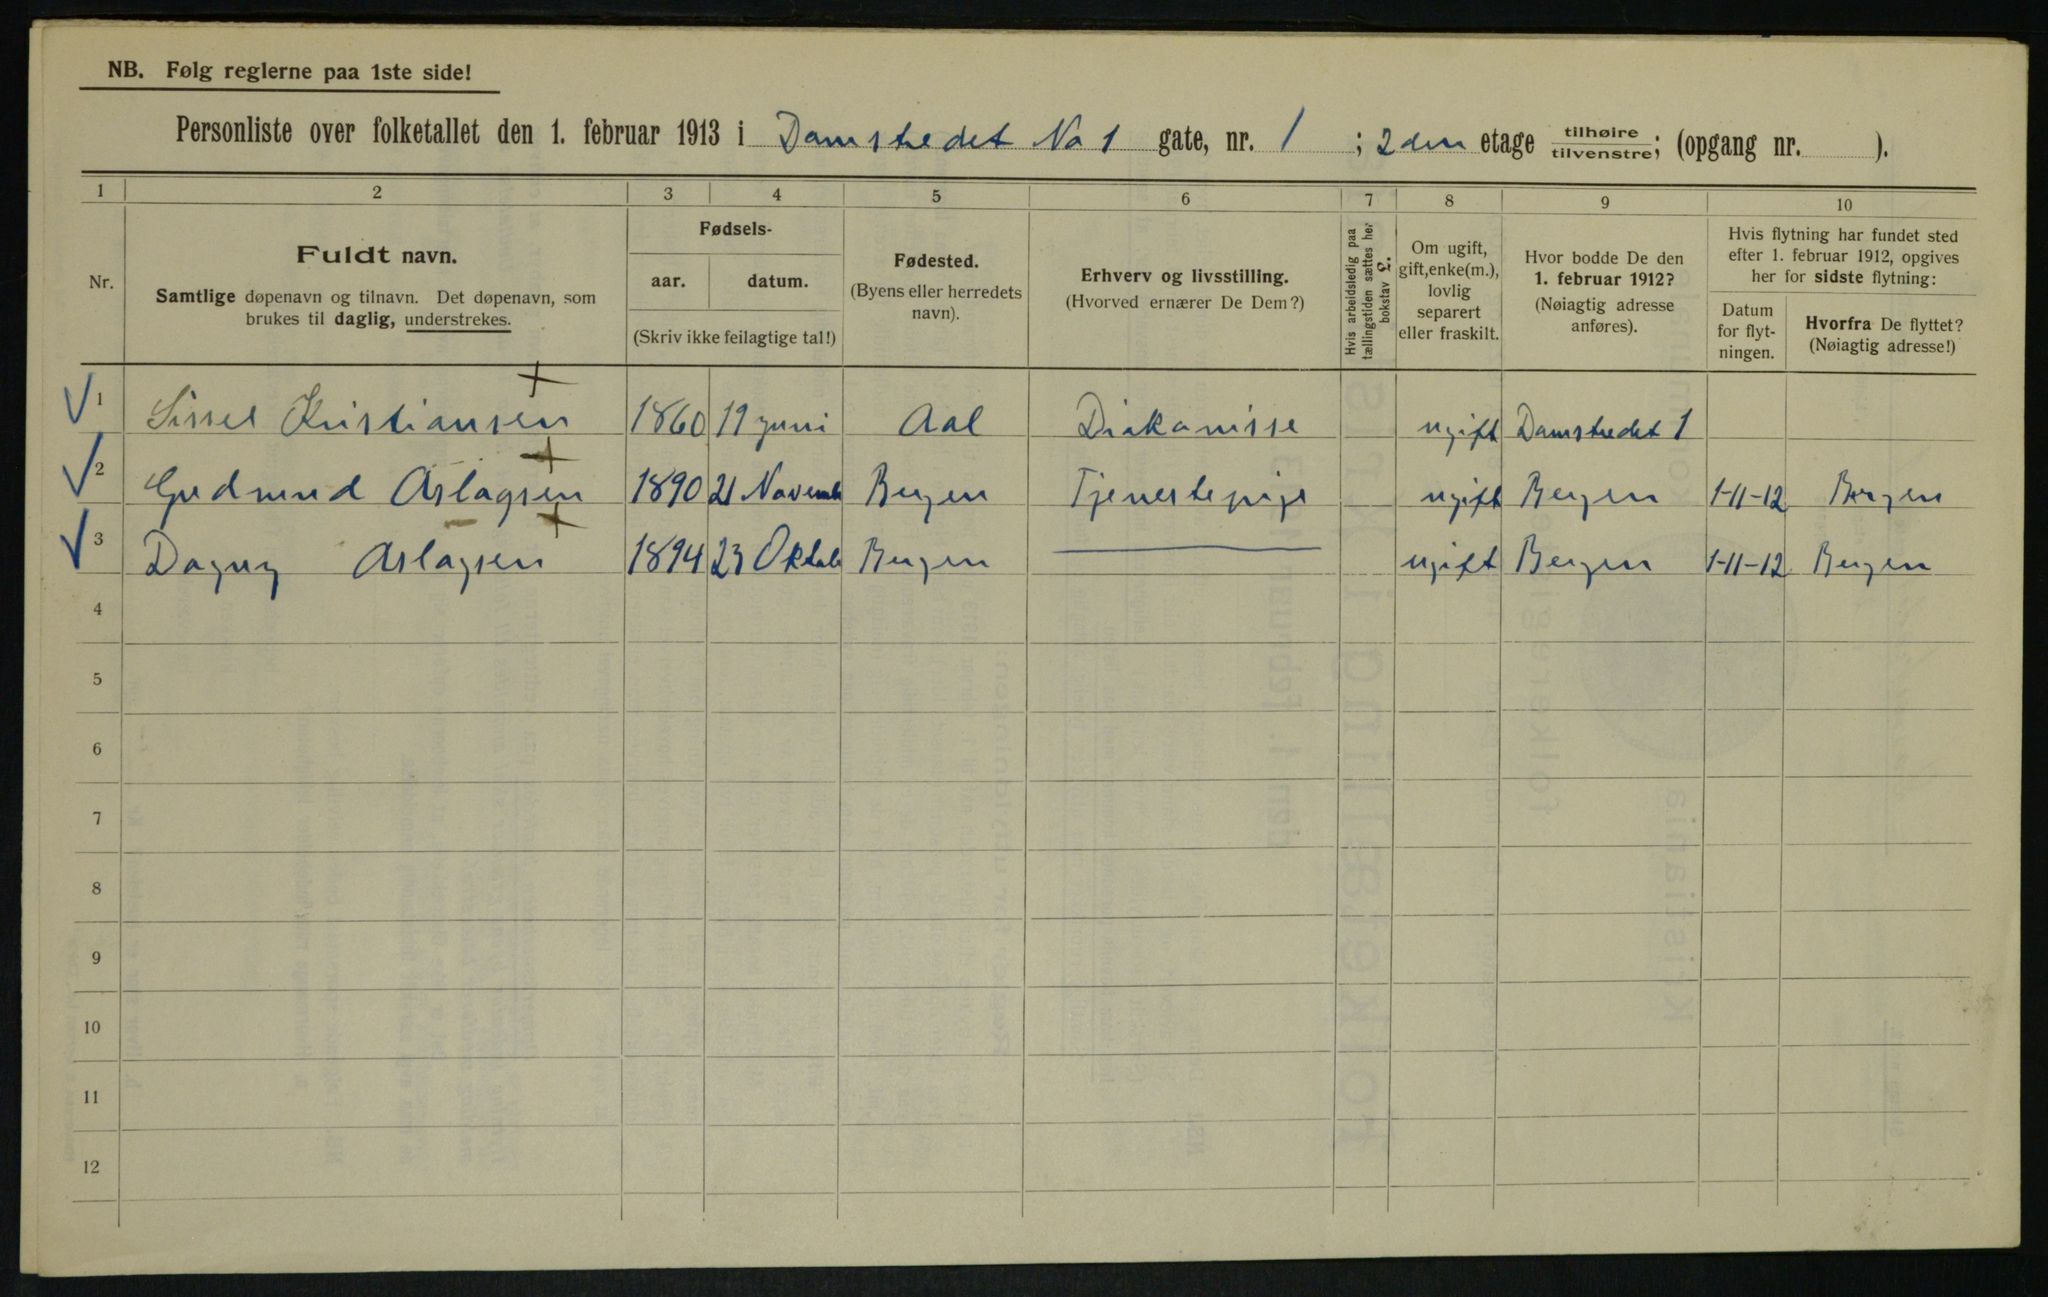 NB. Følg reglerne paa 1ste side!
Personliste over folketallet den 1. februar 1913 i Damstredet No 1 gate, nr. 1 ; 2den etage tilhøire tilvenstre; (opgang nr. ).
1 2 3 4 5 6 7 8 9 10
Nr.
Fuldt navn.
Samtlige døpenavn og tilnavn. Det døpenavn, som
brukes til daglig, understrekes.
Fødsels-
aar. datum.
(Skriv ikke feilagtige tal!)
Fødested.
(Byens eller herredets
navn).
Erhverv og livsstilling.
(Hvorved ernærer De Dem?)
Hvis arbeidsledig paa
tællingstiden sættes her
bokstav L.
Om ugift,
gift, enke(m.),
lovlig
separert
eller fraskilt.
Hvor bodde De den
1. februar 1912?
(Nøiagtig adresse
anføres).
Hvis flytning har fundet sted
efter 1. februar 1912, opgives
her for sidste flytning:
Datum
for flyt-
ningen.
Hvorfra De flyttet?
(Nøiagtig adresse!)
1 Sissel Kristiansen 1860 19 juni Aal Diakonisse ugift Damstredet 1
2 Gudmund Aslagsen 1890 21 Novemb Bergen Tjenestepige ugift Bergen 1-11-12 Bergen
3 Dagny Aslagsen 1894 23 Oktob Bergen ugift Bergen 1-11-12 Bergen
4
5
6
7
8
9
10
11
12